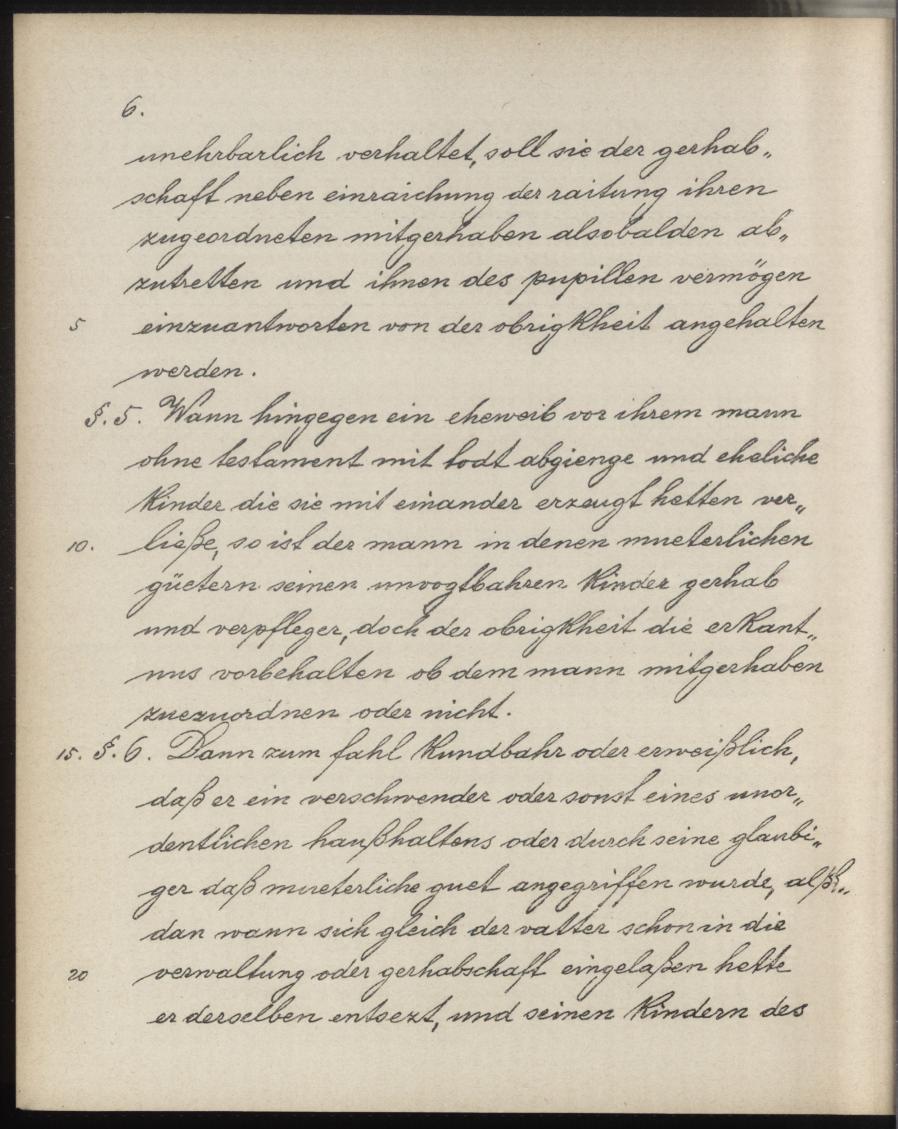 6.
unehrbarlich verhaltet, soll sie der gerhab„
schaft neben einraichung der raitung ihren
zugeordneten mitgerhaben alsobalden ab„
zutretten und ihnen des pupillen vermögen
5 einzuantworten von der obrigkheit angehalten
werden.
§. 5. Wann hingegen ein eheweib vor ihrem mann
ohne testament mit todt abgienge und eheliche
Kinder die sie mit einander erzeugt hetten ver„
10. ließe, so ist der mann in denen mueterlichen
güetern seinen unvogtbahren Kinder gerhab
und verpfleger, doch der obrigkheit die erkant„
nus vorbehalten ob dem mann mitgerhaben
zuezuordnen oder nicht.
15. §. 6. Dann zum fahl kundbahr oder erweißlich,
daß er ein verschwender oder sonst eines unor„
dentlichen haußhaltens oder durch seine glaubi„
ger daß mueterliche guet angegriffen wurde,
dan wann sich gleich der vatter schon in die
20 verwaltung oder gerhabschaft eingelaßen hette
er derselben entsezt, und seinen Kindern des